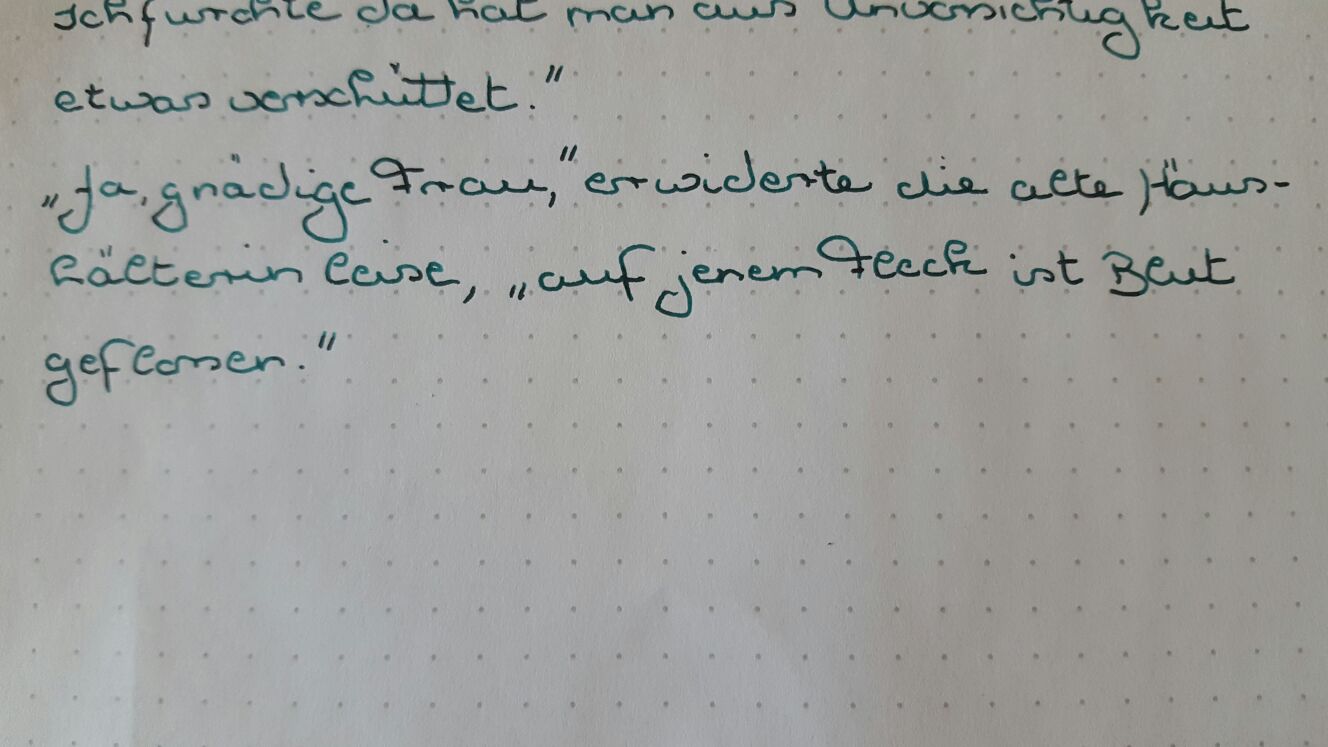 Ich fürchte da hat man aus Unvorsichtigkeit
etwas verschüttet."
„Ja, gnädige Frau," erwiderte die alte Häus-
hälterin leise, „auf jenem Fleck ist Blut
geflossen."